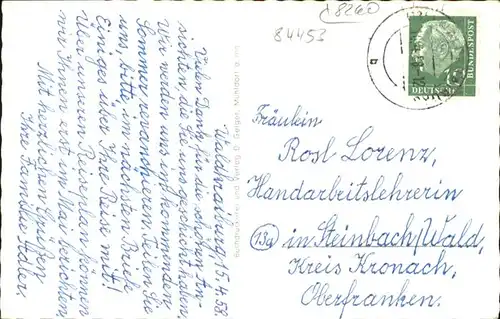 18260
84453
DEUTSCHE
BUNDESPOST
Waldkraiburg 15.4.58
Vielen Dank für die schönen An-
sichten, die Sie uns geschickt haben.
Wir werden uns im kommenden
Sommer revanchieren. Teilen Sie
uns, bitte, im nächsten Brief
Einiges über Ihre Reise mit!
Über unseren Reiseplan können
wir Ihnen erst im Mai berichten.
Mit herzlichen Grüßen
Ihre Familie
Fräulein
Rosl Lorenz,
Handarbeitslehrerin
(13a) in Steinbach/Wald,
Kreis Kronach,
Oberfranken.